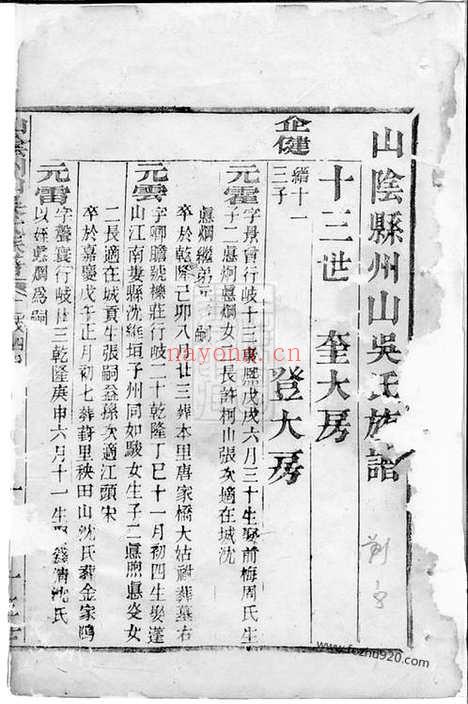 山陰縣州山吳氏族譜
十三世 奎大房 登大房
企健
繼十一
三子
元霍
字景會行歧十三康熙戊戌六月三十生娶前梅周氏生
子二懸炯懸爛女二長許柯山張次適在城沈
懸爛繼弟 嗣
卒於乾隆己卯八月廿三葬本里唐家橋大姑 葬墓右
元雲
字卿膽號櫟莊行歧二十乾隆丁巳十一月初四生娶蓬
山江南婁縣沈維垣子州同如駿女生子二懸煦懸 女
二長適在城貢生張嗣益孫次適江頭宋
卒於嘉慶戊午正月初七葬葑里秧田山沈氏葬金家隝
元雷
字聲寰行歧廿三乾隆庚申六月十一生 錢清沈氏
以姪懸爛為嗣
nayona.cn
www.fozhu920.com